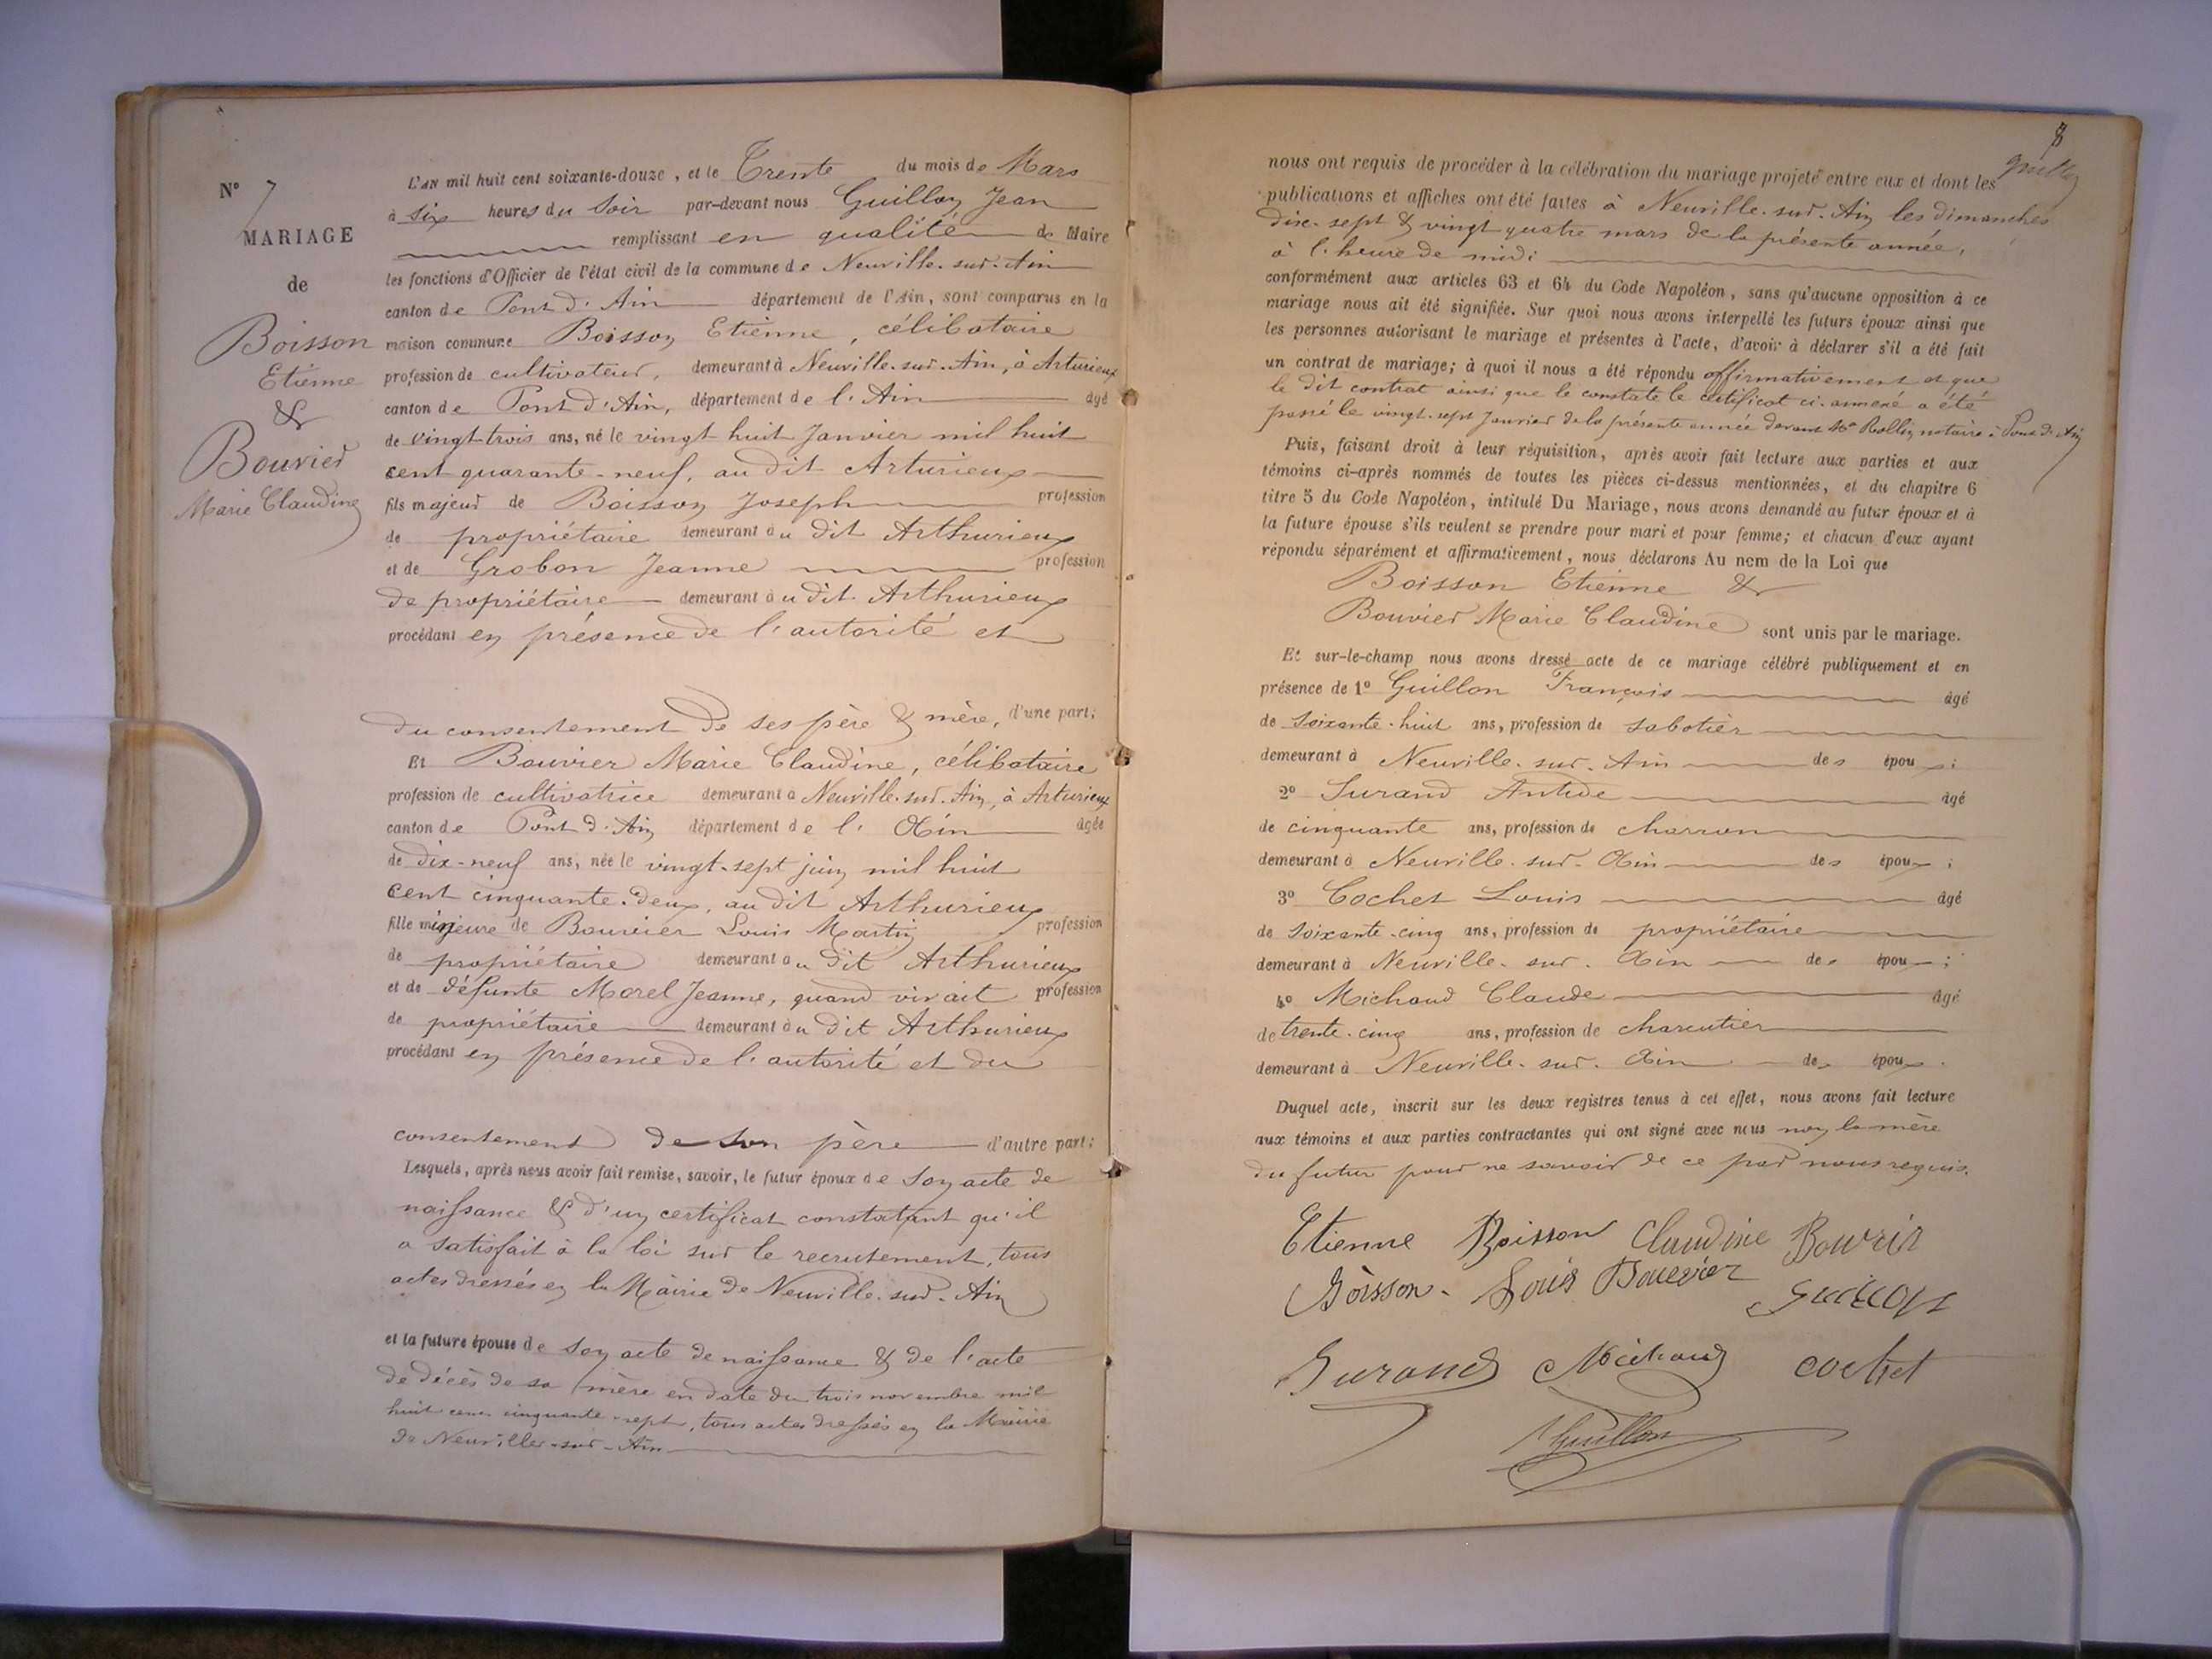 N° 7
MARIAGE
de
Boisson
Etienne
&
Bouvier
Marie Claudine
L'AN mil huit cent soixante-douze, et le Trente du mois de Mars
à six heures du Soir par-devant nous Guillon Jean
remplissant en qualité de Maire
les fonctions d'Officier de l'état civil de la commune de Neuville-sur-Ain
canton de Pont d'Ain département de l'Ain, sont comparus en la
maison commune Boisson Etienne, célibataire
profession de cultivateur, demeurant à Neuville-sur-Ain, à Arturieux
canton de Pont d'Ain, département de l'Ain âgé
de vingt trois ans, né le vingt huit Janvier mil huit
cent quarante-neuf, au dit Arturieux
fils majeur de Boisson Joseph profession
de propriétaire demeurant au dit Arthurieux
et de Grobon Jeanne profession
de propriétaire demeurant au dit Arthurieux
procédant en présence de l'autorité et
du consentement de ses père & mère, d'une part;
Et Bouvier Marie Claudine, célibataire
profession de cultivatrice demeurant à Neuville-sur-Ain, à Arturieux
canton de Pont d'Ain département de l'Ain âgée
de dix-neuf ans, née le vingt-sept juin mil huit
cent cinquante-deux, au dit Arthurieux
fille mineure de Bouvier Louis Martin profession
de propriétaire demeurant au dit Arthurieux
et de défunte Morel Jeanne, quand vivait profession
de propriétaire demeurant au dit Arthurieux
procédant en présence de l'autorité et du
consentement de son père d'autre part;
Lesquels, après nous avoir fait remise, savoir, le futur époux de son acte de
naissance & d'un certificat constatant qu'il
a satisfait à la loi sur le recrutement, tous
actes dressés en la Mairie de Neuville-sur-Ain
et la future épouse de son acte de naissance & de l'acte
de décès de sa mère en date du trois novembre mil
huit cent cinquante-sept, tous actes dressés en la Mairie
de Neuville-sur-Ain
8
Guillon
nous ont requis de procéder à la célébration du mariage projeté entre eux et dont les
publications et affiches ont été faites à Neuville-sur-Ain les dimanches
dix-sept & vingt quatre mars de la présente année,
à l'heure de midi
conformément aux articles 63 et 64 du Code Napoléon, sans qu'aucune opposition à ce
mariage nous ait été signifiée. Sur quoi nous avons interpellé les futurs époux ainsi que
les personnes autorisant le mariage et présentes à l'acte, d'avoir à déclarer s'il a été fait
un contrat de mariage; à quoi il nous a été répondu affirmativement et que
le dit contrat ainsi que le constate le certificat ci-annexé a été
passé le vingt-sept Janvier de la présente année devant Me Rollin notaire à Pont d'Ain
Puis, faisant droit à leur réquisition, après avoir fait lecture aux parties et aux
témoins ci-après nommés de toutes les pièces ci-dessus mentionnées, et du chapitre 6
titre 5 du Code Napoléon, intitulé Du Mariage, nous avons demandé au futur époux et à
la future épouse s'ils veulent se prendre pour mari et pour femme; et chacun d'eux ayant
répondu séparément et affirmativement, nous déclarons Au nom de la Loi que
Boisson Etienne &
Bouvier Marie Claudine sont unis par le mariage.
Et sur-le-champ nous avons dressé acte de ce mariage célébré publiquement et en
présence de 1° Guillon François âgé
de Soixante-huit ans, profession de sabotier
demeurant à Neuville-sur-Ain des époux;
2° Surand Antide âgé
de cinquante ans, profession de charron
demeurant à Neuville-sur-Ain des époux;
3° Cochet Louis âgé
de Soixante-cinq ans, profession de propriétaire
demeurant à Neuville-sur-Ain des époux;
4° Michaud Claude âgé
de trente-cinq ans, profession de charcutier
demeurant à Neuville-sur-Ain des époux.
Duquel acte, inscrit sur les deux registres tenus à cet effet, nous avons fait lecture
aux témoins et aux parties contractantes qui ont signé avec nous non la mère
du futur pour ne savoir de ce par nous requis.
Etienne Boisson Claudine Bouvir
Boisson. Louis Bouvier Guillon
Surand Michaud cochet
Guillon